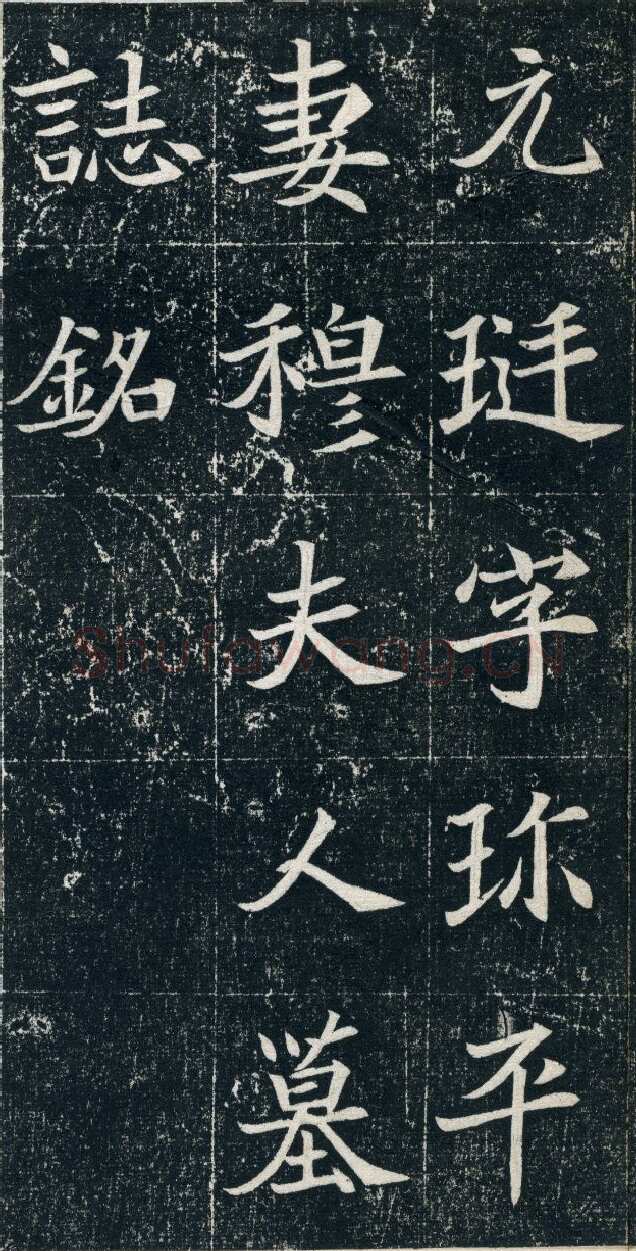 元珽字珎平
妻穆夫人墓
誌銘
Shufawang.CN